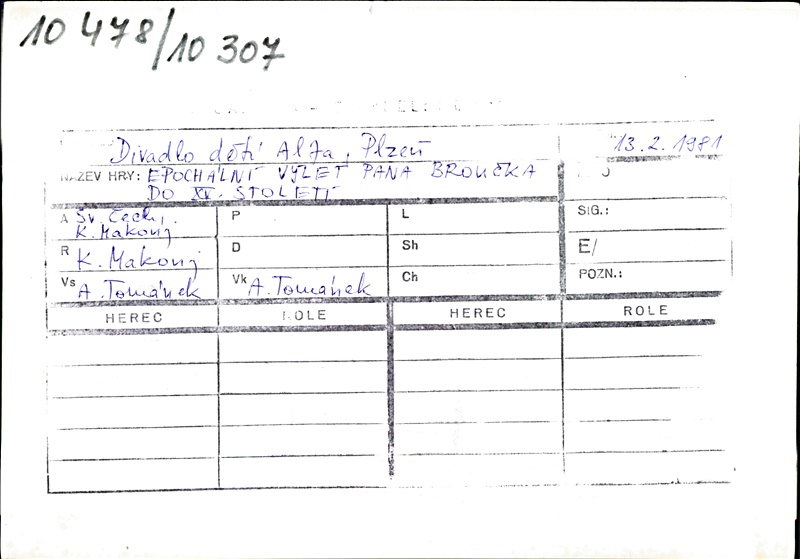 10 478/10 307
Divadlo dětí Alfa, Plzeň 13.2.1981
NÁZEV HRY: EPOCHÁLNÍ VÝLET PANA BROUČKA
DO XV. STOLETÍ
A Sv. Čech, P L SIG.:
K. Makonj
R K. Makonj D Sh E/
Vs A. Tománek Vk A. Tománek Ch POZN.:
HEREC ROLE HEREC ROLE